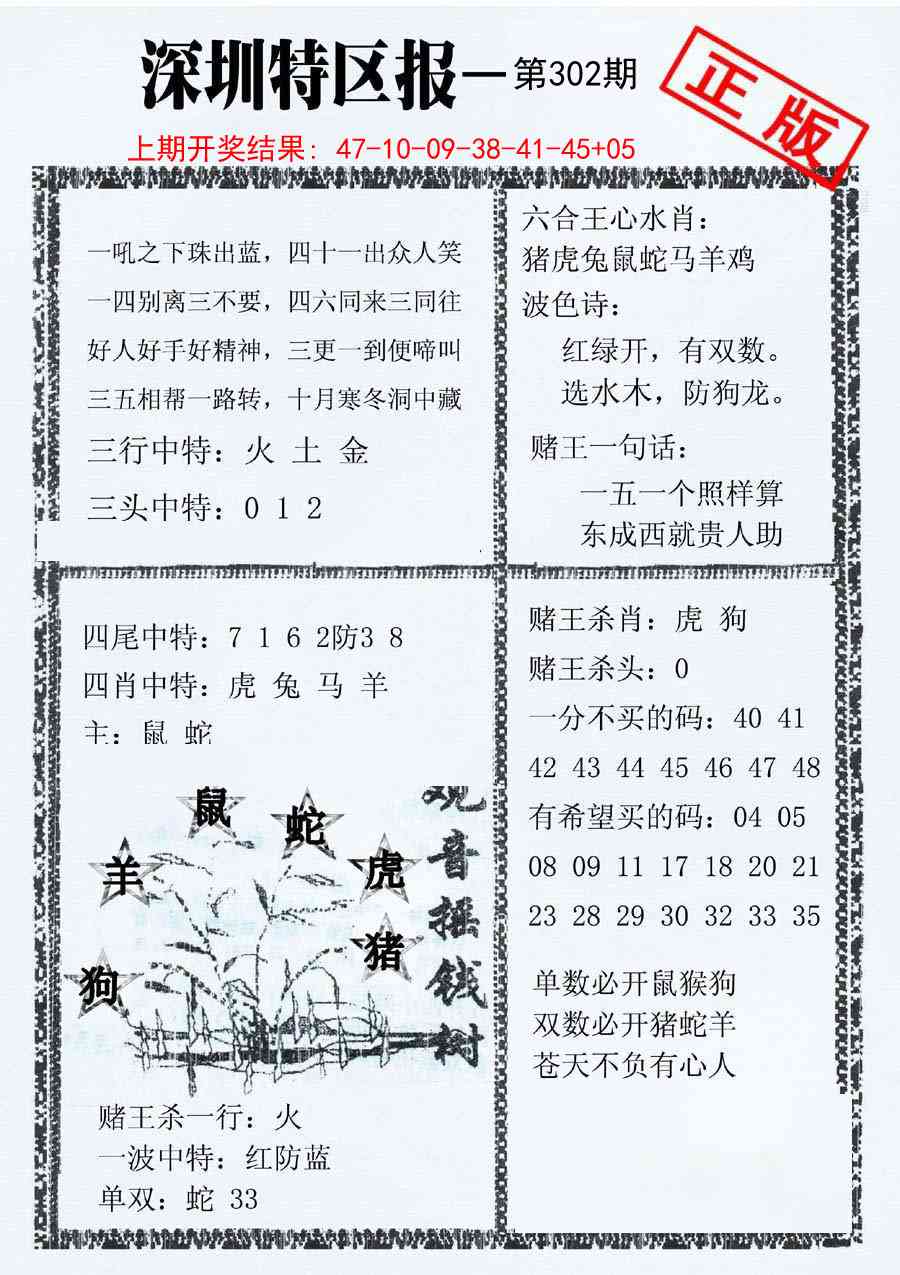 深圳特区报—第302期
正版
上期开奖结果: 47-10-09-38-41-45+05
一吼之下珠出蓝，四十一出众人笑
一四别离三不要，四六同来三同往
好人好手好精神，三更一到便啼叫
三五相帮一路转，十月寒冬洞中藏
三行中特：火 土 金
三头中特：0 1 2
六合王心水肖：
猪虎兔鼠蛇马羊鸡
波色诗：
红绿开，有双数。
选水木，防狗龙。
赌王一句话：
一五一个照样算
东成西就贵人助
四尾中特：7 1 6 2防3 8
四肖中特：虎 兔 马 羊
主：鼠 蛇
鼠
蛇
羊
虎
猪
狗
观音摇钱树
赌王杀一行：火
一波中特：红防蓝
单双：蛇 33
赌王杀肖：虎 狗
赌王杀头：0
一分不买的码：40 41
42 43 44 45 46 47 48
有希望买的码：04 05
08 09 11 17 18 20 21
23 28 29 30 32 33 35
单数必开鼠猴狗
双数必开猪蛇羊
苍天不负有心人